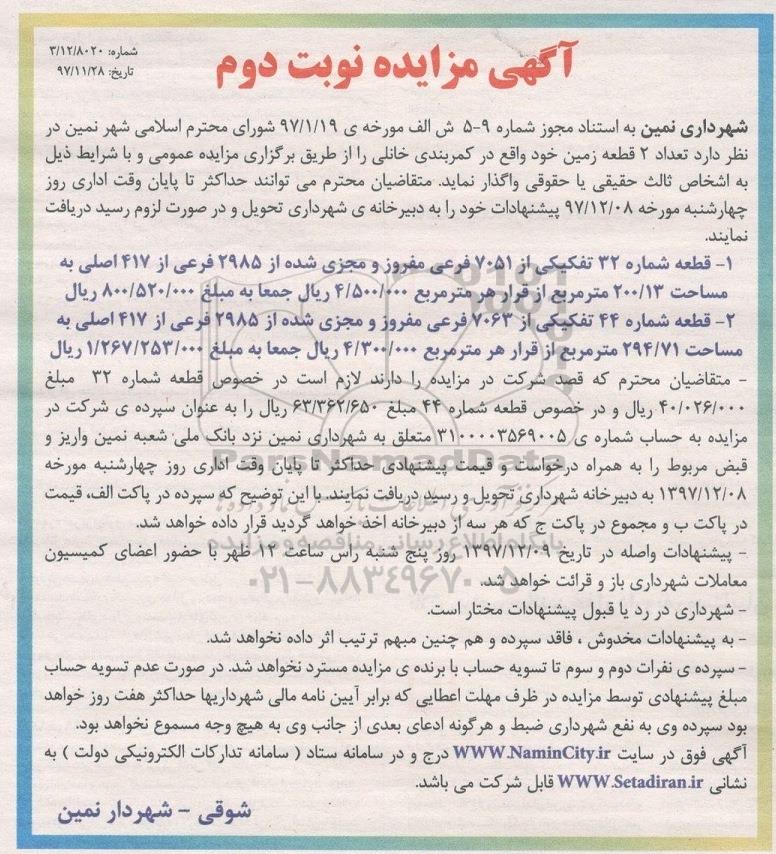 آگهی مزایده نوبت دوم
شماره: ۳/۱۲/۸۰۲۰
تاریخ: ۹۷/۱۱/۲۸
شهرداری نمین به استناد مجوز شماره ۹-۵ ش الف مورخه ی ۹۷/۱/۱۹ شورای محترم اسلامی شهر نمین در
نظر دارد تعداد ۲ قطعه زمین خود واقع در کمربندی خانلی را از طریق برگزاری مزایده عمومی و با شرایط ذیل
به اشخاص ثالث حقیقی یا حقوقی واگذار نماید. متقاضیان محترم می توانند حداکثر تا پایان وقت اداری روز
چهارشنبه مورخه ۹۷/۱۲/۰۸ پیشنهادات خود را به دبیرخانه ی شهرداری تحویل و در صورت لزوم رسید دریافت
نمایند.
۱- قطعه شماره ۳۲ تفکیکی از ۷۰۵۱ فرعی مفروز و مجزی شده از ۲۹۸۵ فرعی از ۴۱۷ اصلی به
مساحت ۲۰۰/۱۳ مترمربع از قرار هر مترمربع ۴/۵۰۰/۰۰۰ ریال جمعا به مبلغ ۸۰۰/۵۲۰/۰۰۰ ریال
۲- قطعه شماره ۴۴ تفکیکی از ۷۰۶۳ فرعی مفروز و مجزی شده از ۲۹۸۵ فرعی از ۴۱۷ اصلی به
مساحت ۲۹۴/۷۱ مترمربع از قرار هر مترمربع ۴/۳۰۰/۰۰۰ ریال جمعا به مبلغ ۱/۲۶۷/۲۵۳/۰۰۰ ریال
- متقاضیان محترم که قصد شرکت در مزایده را دارند لازم است در خصوص قطعه شماره ۳۲ مبلغ
۴۰/۰۲۶/۰۰۰ ریال و در خصوص قطعه شماره ۴۴ مبلغ ۶۳/۳۶۲/۶۵۰ ریال را به عنوان سپرده ی شرکت در
مزایده به حساب شماره ی ۳۱۰۰۰۰۳۵۶۹۰۰۵ متعلق به شهرداری نمین نزد بانک ملی شعبه نمین واریز و
قبض مربوط را به همراه درخواست و قیمت پیشنهادی حداکثر تا پایان وقت اداری روز چهارشنبه مورخه
۱۳۹۷/۱۲/۰۸ به دبیرخانه شهرداری تحویل و رسید دریافت نمایند. با این توضیح که سپرده در پاکت الف، قیمت
در پاکت ب و مجموع در پاکت ج که هر سه از دبیرخانه اخذ خواهد گردید قرار داده خواهد شد.
- پیشنهادات واصله در تاریخ ۱۳۹۷/۱۲/۰۹ روز پنج شنبه راس ساعت ۱۲ ظهر با حضور اعضای کمیسیون
معاملات شهرداری باز و قرائت خواهد شد.
- شهرداری در رد یا قبول پیشنهادات مختار است.
- به پیشنهادات مخدوش ، فاقد سپرده و هم چنین مبهم ترتیب اثر داده نخواهد شد.
- سپرده ی نفرات دوم و سوم تا تسویه حساب با برنده ی مزایده مسترد نخواهد شد. در صورت عدم تسویه حساب
مبلغ پیشنهادی توسط مزایده در ظرف مهلت اعطایی که برابر آیین نامه مالی شهرداریها حداکثر هفت روز خواهد
بود سپرده وی به نفع شهرداری ضبط و هرگونه ادعای بعدی از جانب وی به هیچ وجه مسموع نخواهد بود.
آگهی فوق در سایت WWW.NaminCity.ir درج و در سامانه ستاد ( سامانه تدارکات الکترونیکی دولت ) به
نشانی WWW.Setadiran.ir قابل شرکت می باشد.
شوقی - شهردار نمین
ParsNamadData
پایگاه اطلاع رسانی مناقصه و مزایده
۰۲۱-۸۸۳۴۹۶۷۰-۵